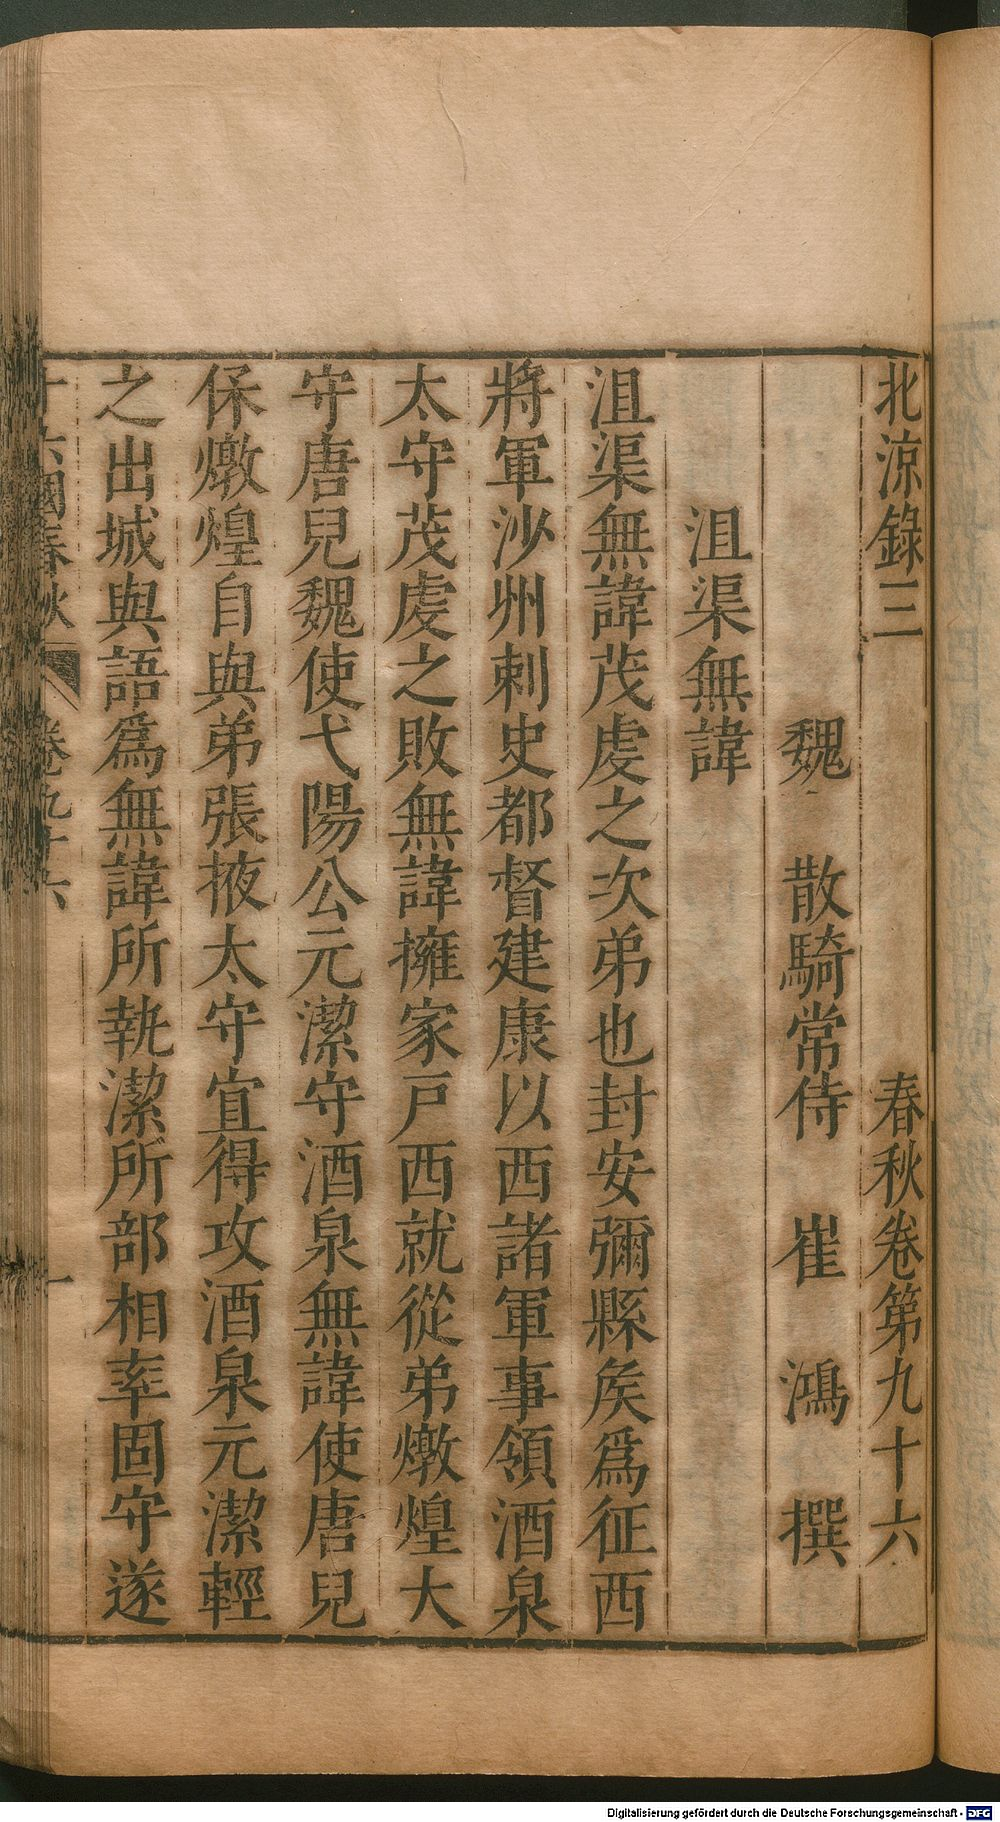 北涼錄三 春秋卷第九十六
魏 散騎常侍 崔 鴻 撰
沮渠無諱
沮渠無諱茂虔之次弟也封安彌縣矦爲征西
將軍沙州刺史都督建康以西諸軍事領酒泉
太守茂虔之敗無諱擁家戸西就從弟燉煌大
守唐兒魏使弋陽公元潔守酒泉無諱使唐兒
保燉煌自與弟張掖太守宜得攻酒泉元潔輕
之出城與語爲無諱所執潔所部相率固守遂
十六國春秋 卷九十六 一
Digitalisierung gefördert durch die Deutsche Forschungsgemeinschaft - DFG